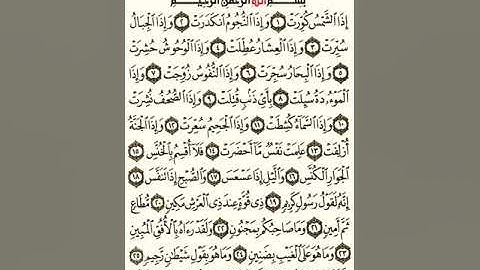 بسم الله الرحمن الرحيم
إِذَا الشَّمْسُ كُوِّرَتْ ١ وَإِذَا النُّجُومُ انكَدَرَتْ ٢ وَإِذَا الْجِبَالُ
سُيِّرَتْ ٣ وَإِذَا الْعِشَارُ عُطِّلَتْ ٤ وَإِذَا الْوُحُوشُ حُشِرَتْ
٥ وَإِذَا الْبِحَارُ سُجِّرَتْ ٦ وَإِذَا النُّفُوسُ زُوِّجَتْ ٧ وَإِذَا
الْمَوْءُۥدَةُ سُئِلَتْ ٨ بِأَيِّ ذَنۢبٍ قُتِلَتْ ٩ وَإِذَا الصُّحُفُ نُشِرَتْ
١٠ وَإِذَا السَّمَاءُ كُشِطَتْ ١١ وَإِذَا الْجَحِيمُ سُعِّرَتْ ١٢ وَإِذَا الْجَنَّةُ
أُزْلِفَتْ ١٣ عَلِمَتْ نَفْسٌ مَّا أَحْضَرَتْ ١٤ فَلَا أُقْسِمُ بِالْخُنَّسِ ١٥
الْجَوَارِ الْكُنَّسِ ١٦ وَالَّيْلِ إِذَا عَسْعَسَ ١٧ وَالصُّبْحِ إِذَا تَنَفَّسَ ١٨
إِنَّهُ لَقَوْلُ رَسُولٍ كَرِيمٍ ١٩ ذِي قُوَّةٍ عِندَ ذِي الْعَرْشِ مَكِينٍ ٢٠ مُّطَاعٍ
ثَمَّ أَمِينٍ ٢١ وَمَا صَاحِبُكُم بِمَجْنُونٍ ٢٢ وَلَقَدْ رَءَاهُ بِالْأُفُقِ الْمُبِينِ
٢٣ وَمَا هُوَ عَلَى الْغَيْبِ بِضَنِينٍ ٢٤ وَمَا هُوَ بِقَوْلِ شَيْطَٰنٍ رَّجِيمٍ ٢٥